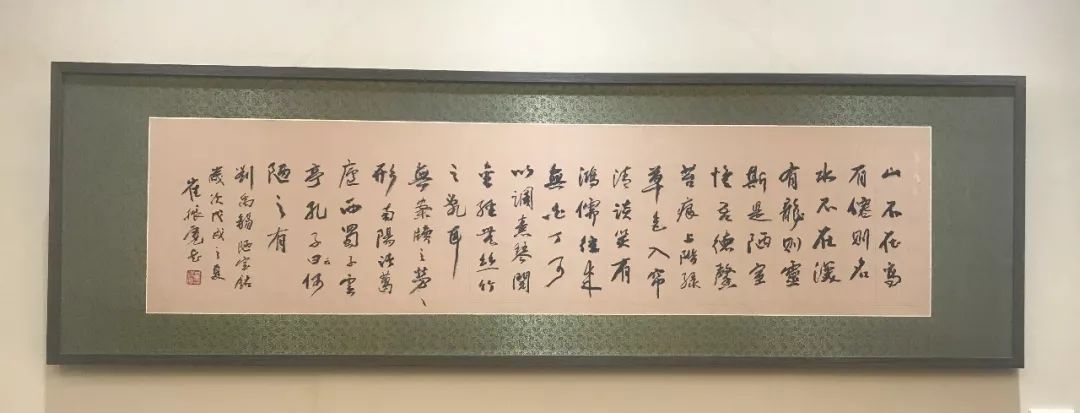 山不在高
有僊則名
水不在深
有龍則靈
斯是陋室
惟吾德馨
苔痕上階綠
草色入帘
清談笑有
鴻儒往来
無白丁可
以調素琴閱
金經無絲竹
之亂耳
無案牘之勞
形南陽諸葛
廬西蜀子雲
亭孔子曰何
陋之有
劉禹錫陋室銘
歲次戊戌之夏
崔振寬書